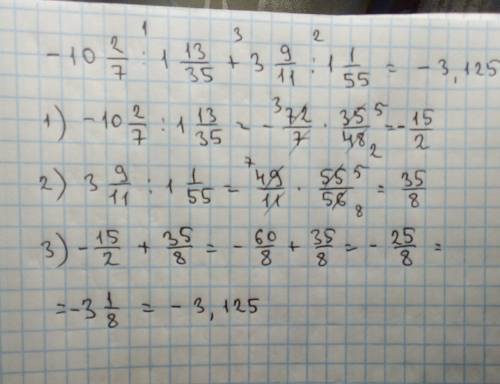 -10 2/7 :¹ 1 13/35 +³ 3 9/11 :² 1 1/55 = -3,125
1) -10 2/7 : 1 13/35 = - ³72/7 · 35⁵/48₂ = - 15/2
2) 3 9/11 : 1 1/55 = ⁷49/11 · 55⁵/56₈ = 35/8
3) - 15/2 + 35/8 = - 60/8 + 35/8 = - 25/8 =
= -3 1/8 = -3,125